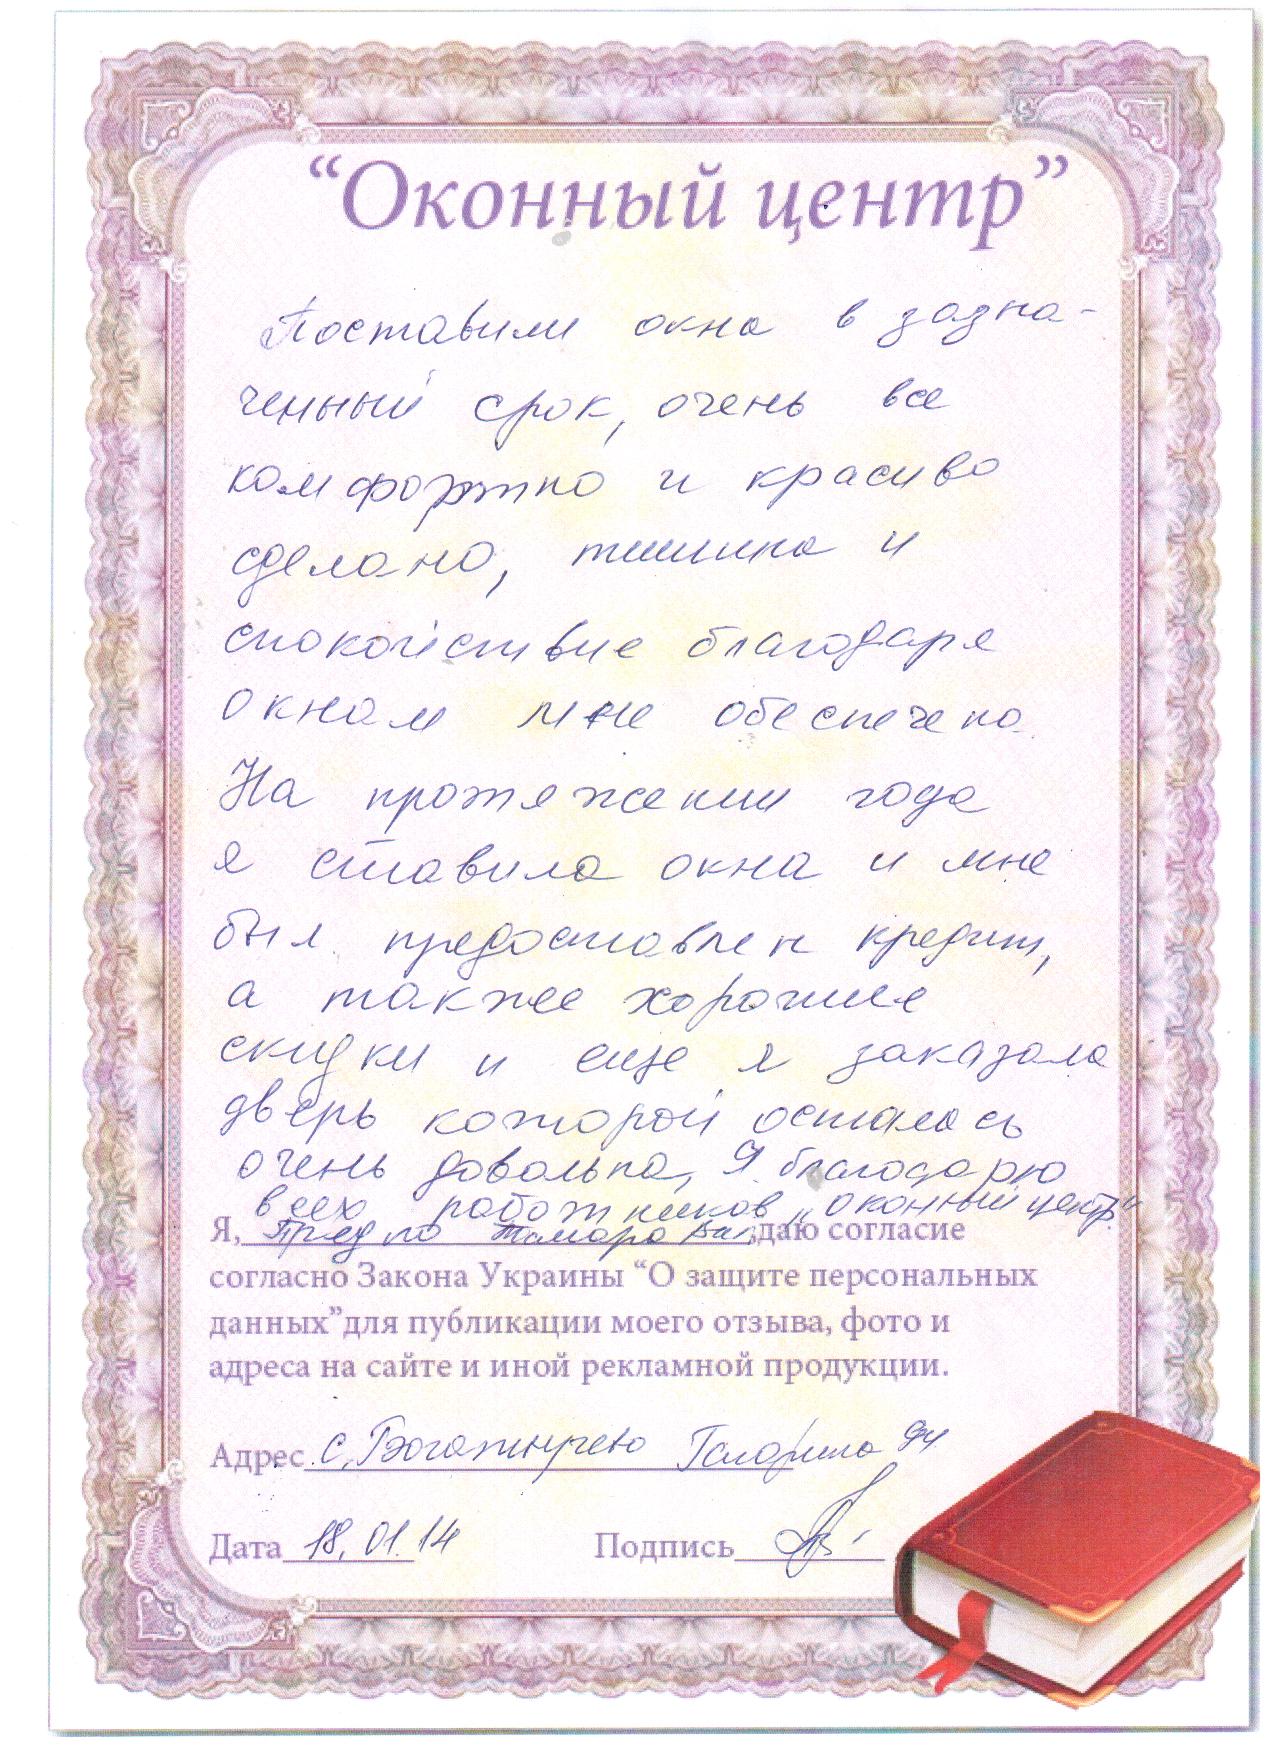 “Оконный центр”
Поставили окна в задна-
ченный срок, очень все
комфортно и красиво
сделано, тишина и
спокойствие благодаря
окнам мне обеспечена.
На протяжении года
я ставила окна и мне
был предоставлен кредит,
а также хорошие
скидки и еще я заказала
дверь которой осталась
очень довольна, Я благодарю
всех работников „оконный центр“
Я, Тамара даю согласие
согласно Закона Украины “О защите персональных
данных”для публикации моего отзыва, фото и
адреса на сайте и иной рекламной продукции.
Адрес с.
Дата 18.01.14 Подпись